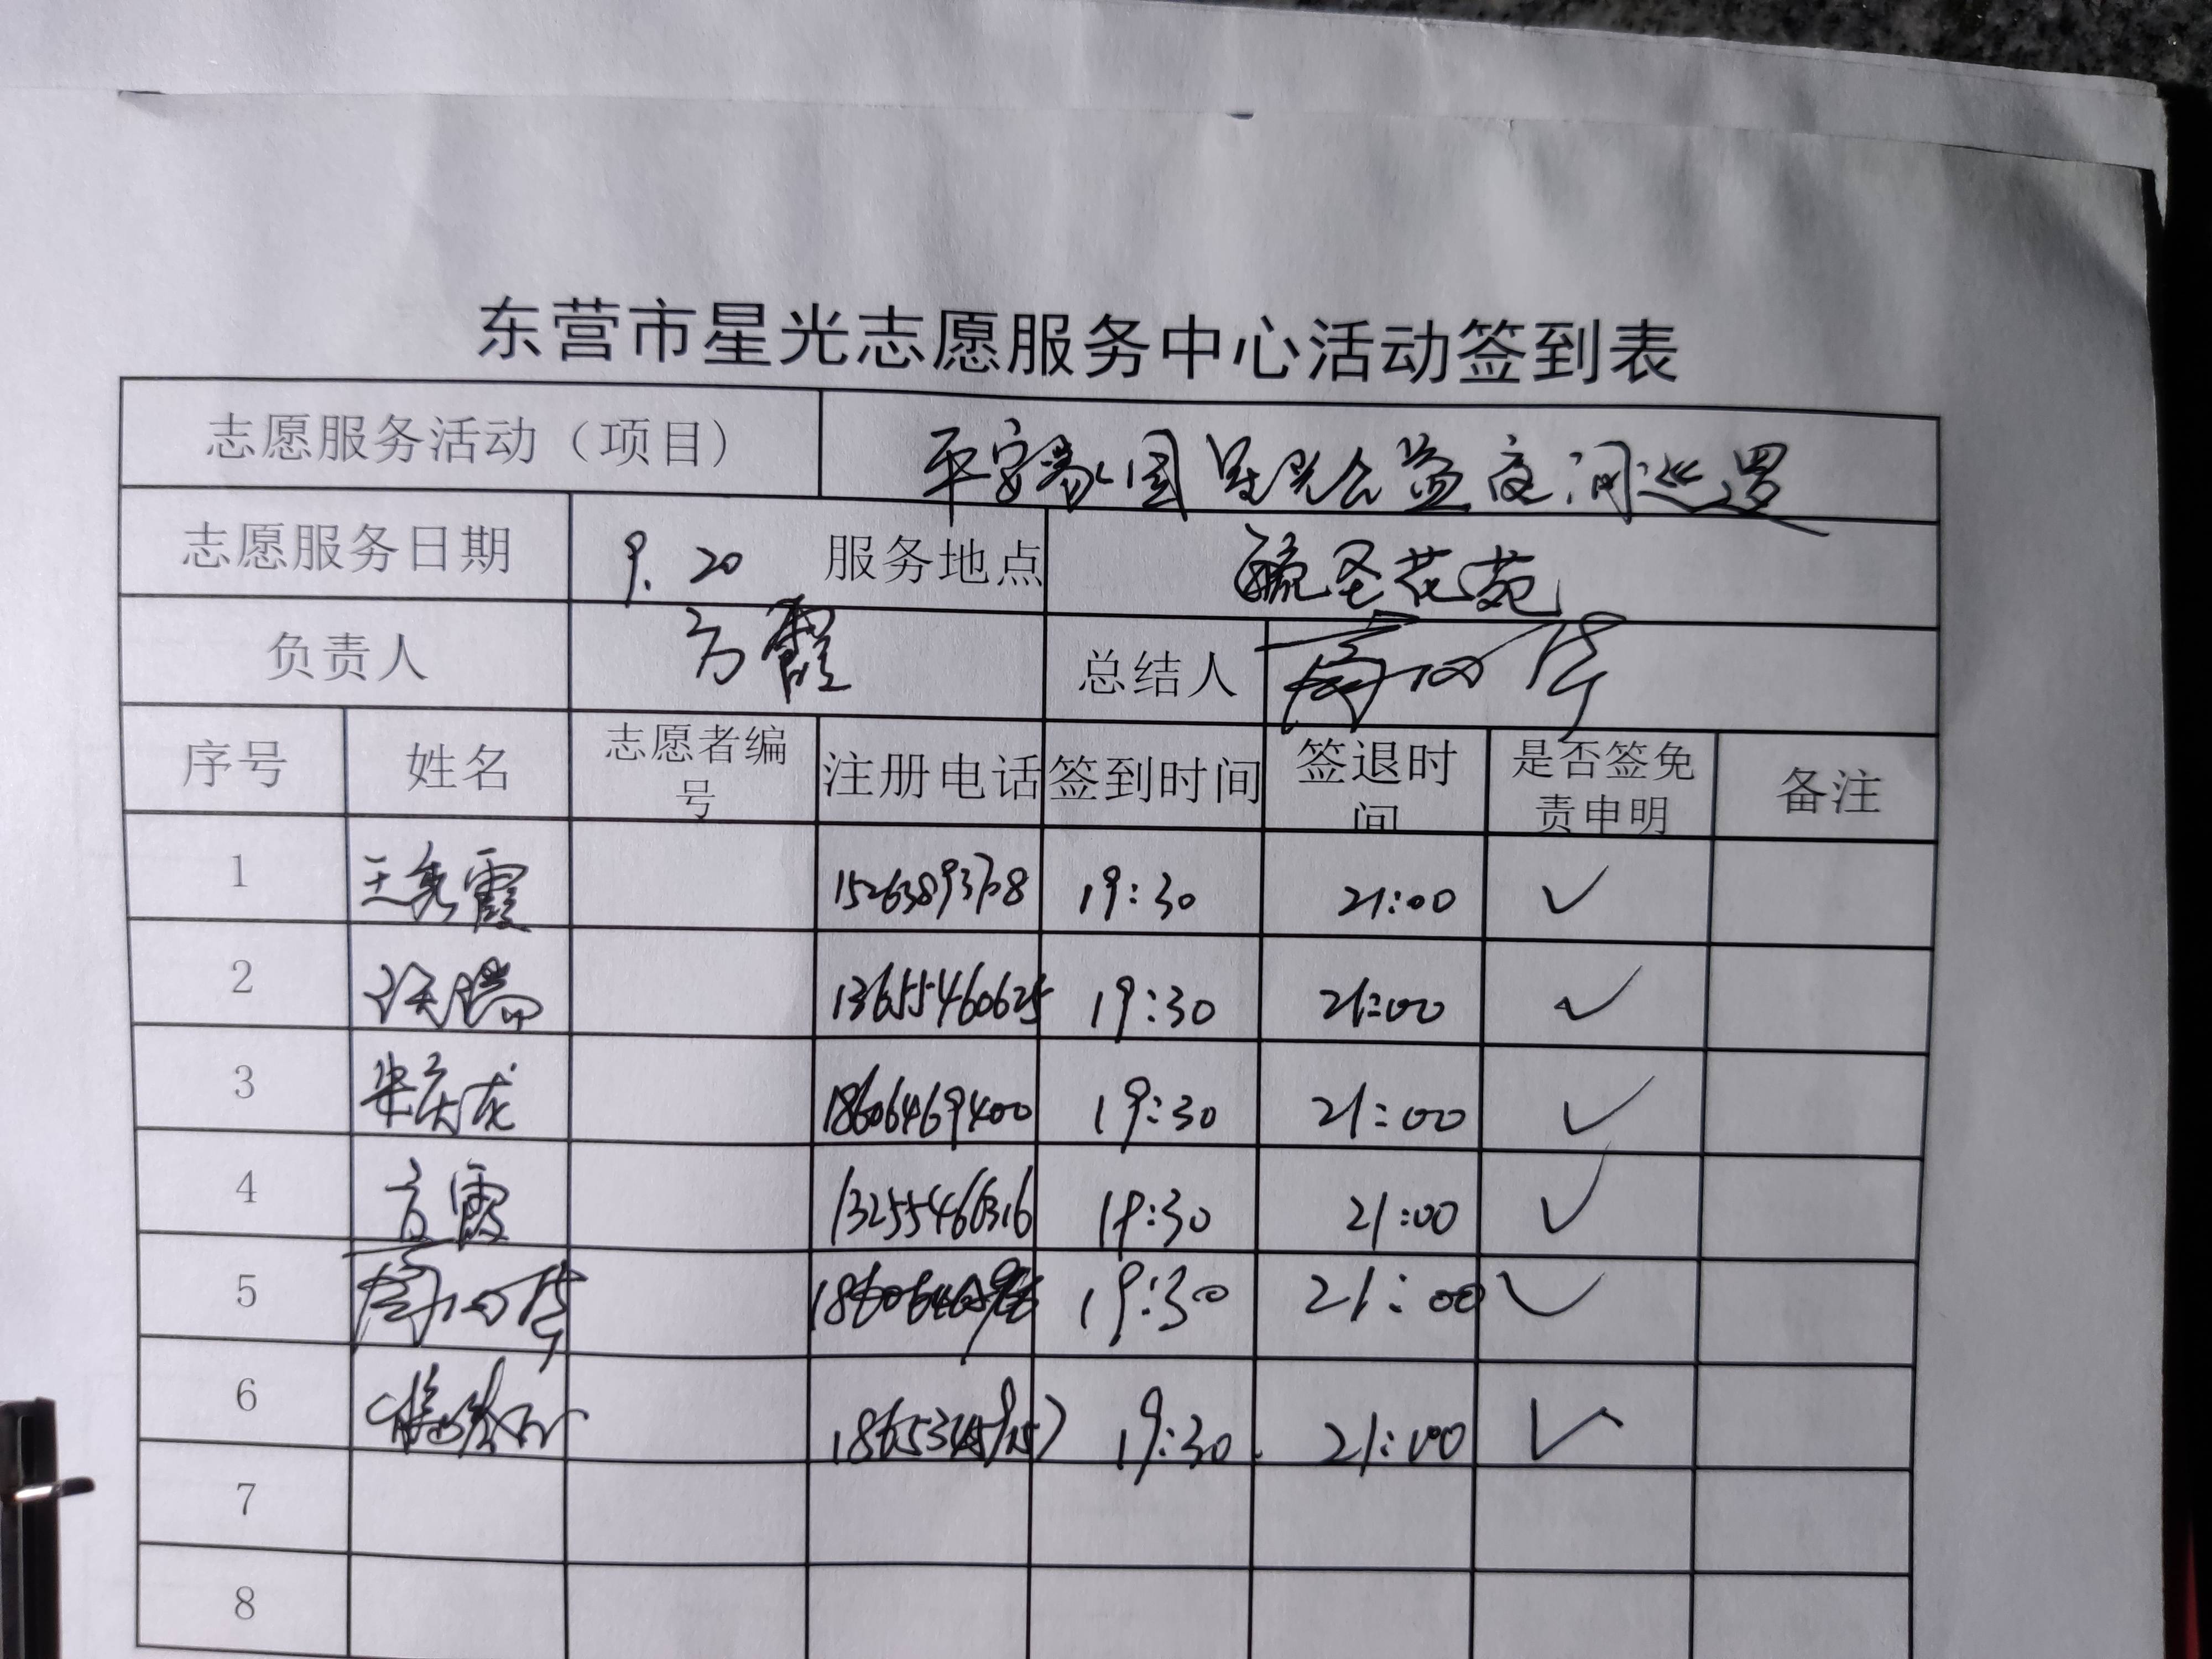 东营市星光志愿服务中心活动签到表
志愿服务活动（项目） 平安家园星光公益夜间巡逻
志愿服务日期 9.20 服务地点 毓圣花苑
负责人 方霞 总结人
序号 姓名 志愿者编号 注册电话 签到时间 签退时间 是否签免责申明 备注
1 王秀霞 19:30 21:00 ✓
2 13655460625 19:30 21:00 ✓
3 朱庆龙 18606469400 19:30 21:00 ✓
4 方霞 19:30 21:00 ✓
5 19:30 21:00 ✓
6 19:30 21:00 ✓
7
8